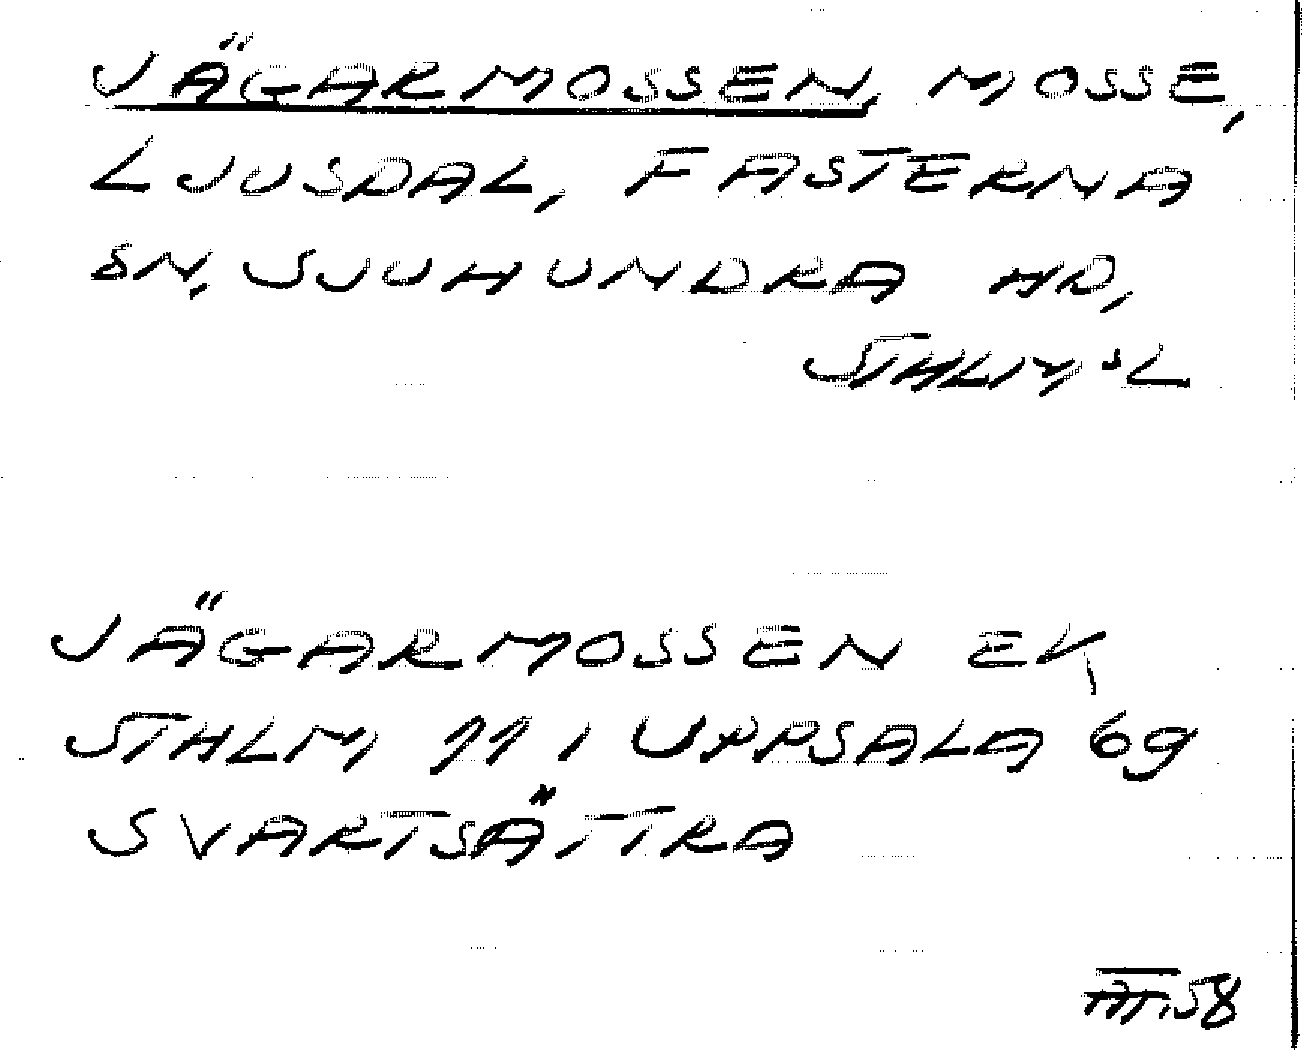 JÄGARMOSSEN, MOSSE,
LJUSDAL, FASTERNA
SN, SJUHUNDRA HD,
STHLM:SL
JÄGARMOSSEN EK
STHLM 111 UPPSALA 69
SVARTSÄTTRA